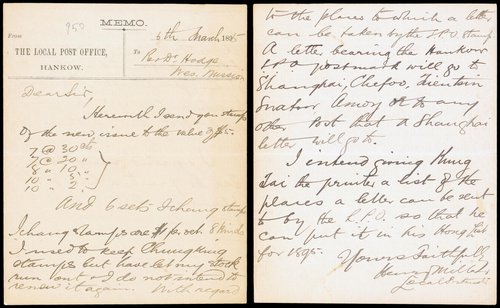 950
MEMO.
From
THE LOCAL POST OFFICE,
HANKOW.
6th March 1895
To
Rev Dr Hodge
Wes. Mission
Dear Sir,
Herewith I send you stamps
of the new issue to the value of $5.
7 @ 30 cts
7 @ 20 "
8 " 10 "
10 " 5 "
10 " 2 "
And 6 sets Ichang stamps
Ichang stamps are per set 8 kinds
I used to keep Chungking
stamps but have let my stock
run out & I do not intend to
renew it again. With regard
to the places to which a letter
can be taken by the L.P.O. stamps
A letter bearing the Hankow
LPO postmark will go to
Shanghai, Chefoo, Tientsin
Swatow Amoy or to any
other Port that a Shanghai
letter will go to.
I intend giving Kung
Tai the printer a list of the
places a letter can be sent
to by the L.P.O. so that he
can put it in his Hong List
for 1895.
Yours Faithfully
Henry
Local Postmaster